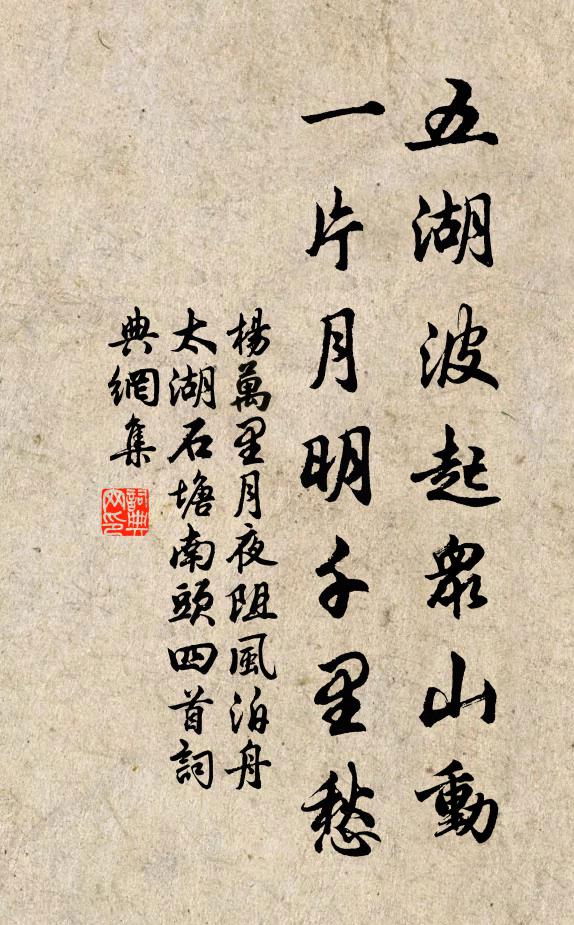 五湖波起眾山動
一片月明千里愁
楊萬里月夜阻風泊舟
太湖石塘南頭四首詞
典網集
詞典网印